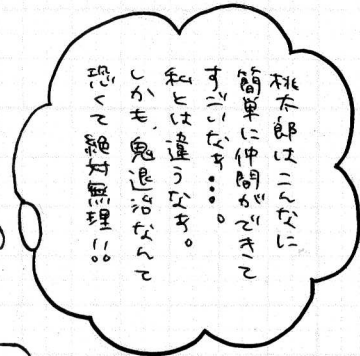 桃太郎はこんなに
簡単に仲間ができて
すごいなぁ・・・。
私とは違うなぁ。
しかも、鬼退治なんて
恐くて絶対無理!!